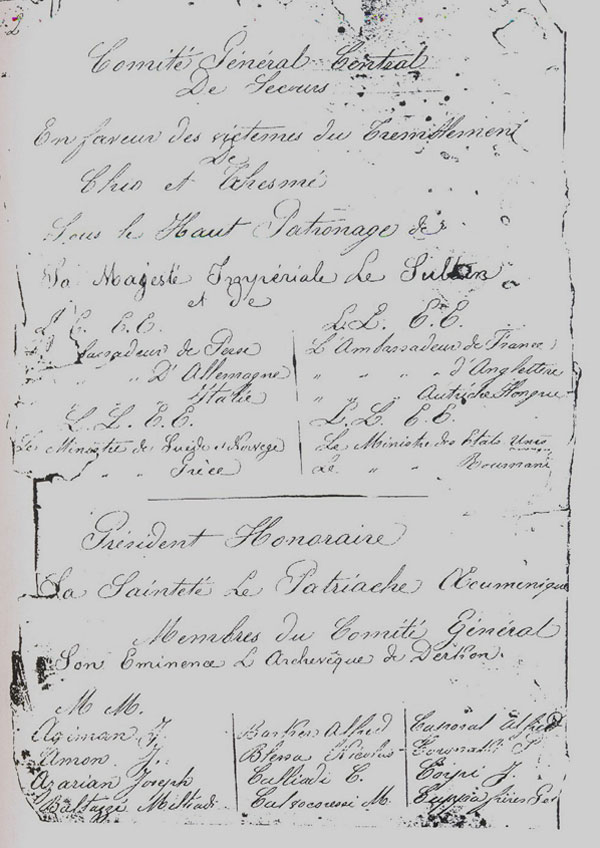 Comité Général Central
De Secours
En faveur des victemes du Tremblement
De
Chio et Thesmé
Sous le Haut Patronage de
Sa Majesté Impériale Le Sultan
et de
L. E. E.E.
L.L. E.E.
bassadeur de Perse
L'Ambassadeur de France
" " D'Allemagne
" " " d'Anglettere
d'Italie
" " " Autriche Hongrie
L.L. E.E.
L.L. E.E.
Le Ministre de Suède et Norvege
Le Ministre des Etats Unis
" " " Grèce
Le " " Roumani
Président Honoraire
Sa Sainteté Le Patriache Œcuménique
Membres du Comité Général
Son Eminence L'Archevêque de Derkon.
M M.
Agiman J.
Barker Alfred
Caporal Alfred
Amon J.
Blessa Nicolas
Azarian Joseph
Calliadi E.
Corpi J.
Baltazzi Miltiadi
Calvocoressi M.
Cuppa frères